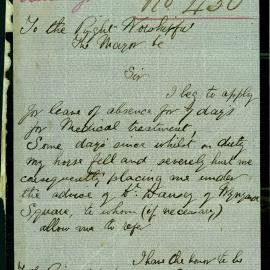 No 430
To the Right Worshipful
The Mayor &c
Sir
I beg to apply
for leave of absence for 7 days
for Medical treatment,
Some days since whilst on duty
my horse fell and severely hurt me
consequently placing me under
the advice of Dr. Dansey of Wynyard
Square, to whom (if necessary)
allow me to refer
I have the honor to be